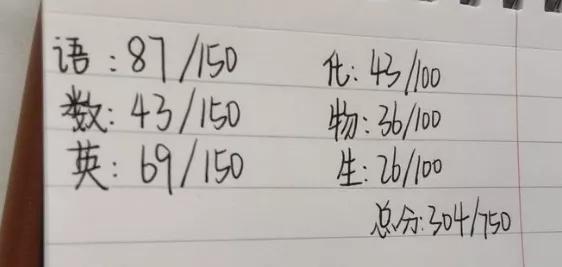 语:87/150 化:43/100
数:43/150 物:36/100
英:69/150 生:26/100
总分:304/750